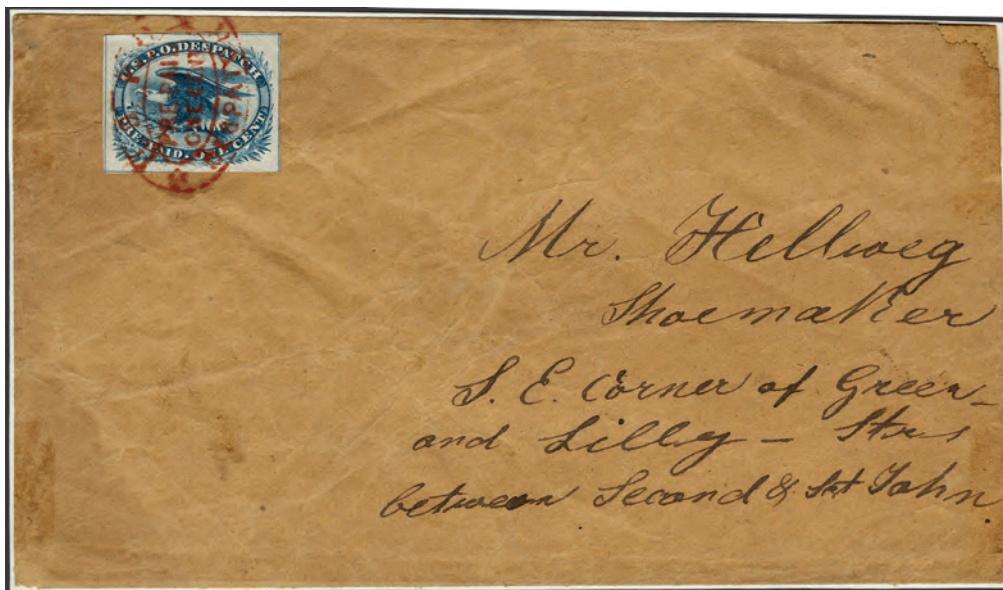 U.S.P.O. DESPATCH
PRE-PAID. ONE CENT.
Mr. Hellweg
Shoemaker
S. E. Corner of Green
and Lilly - Strs
between Second & St John